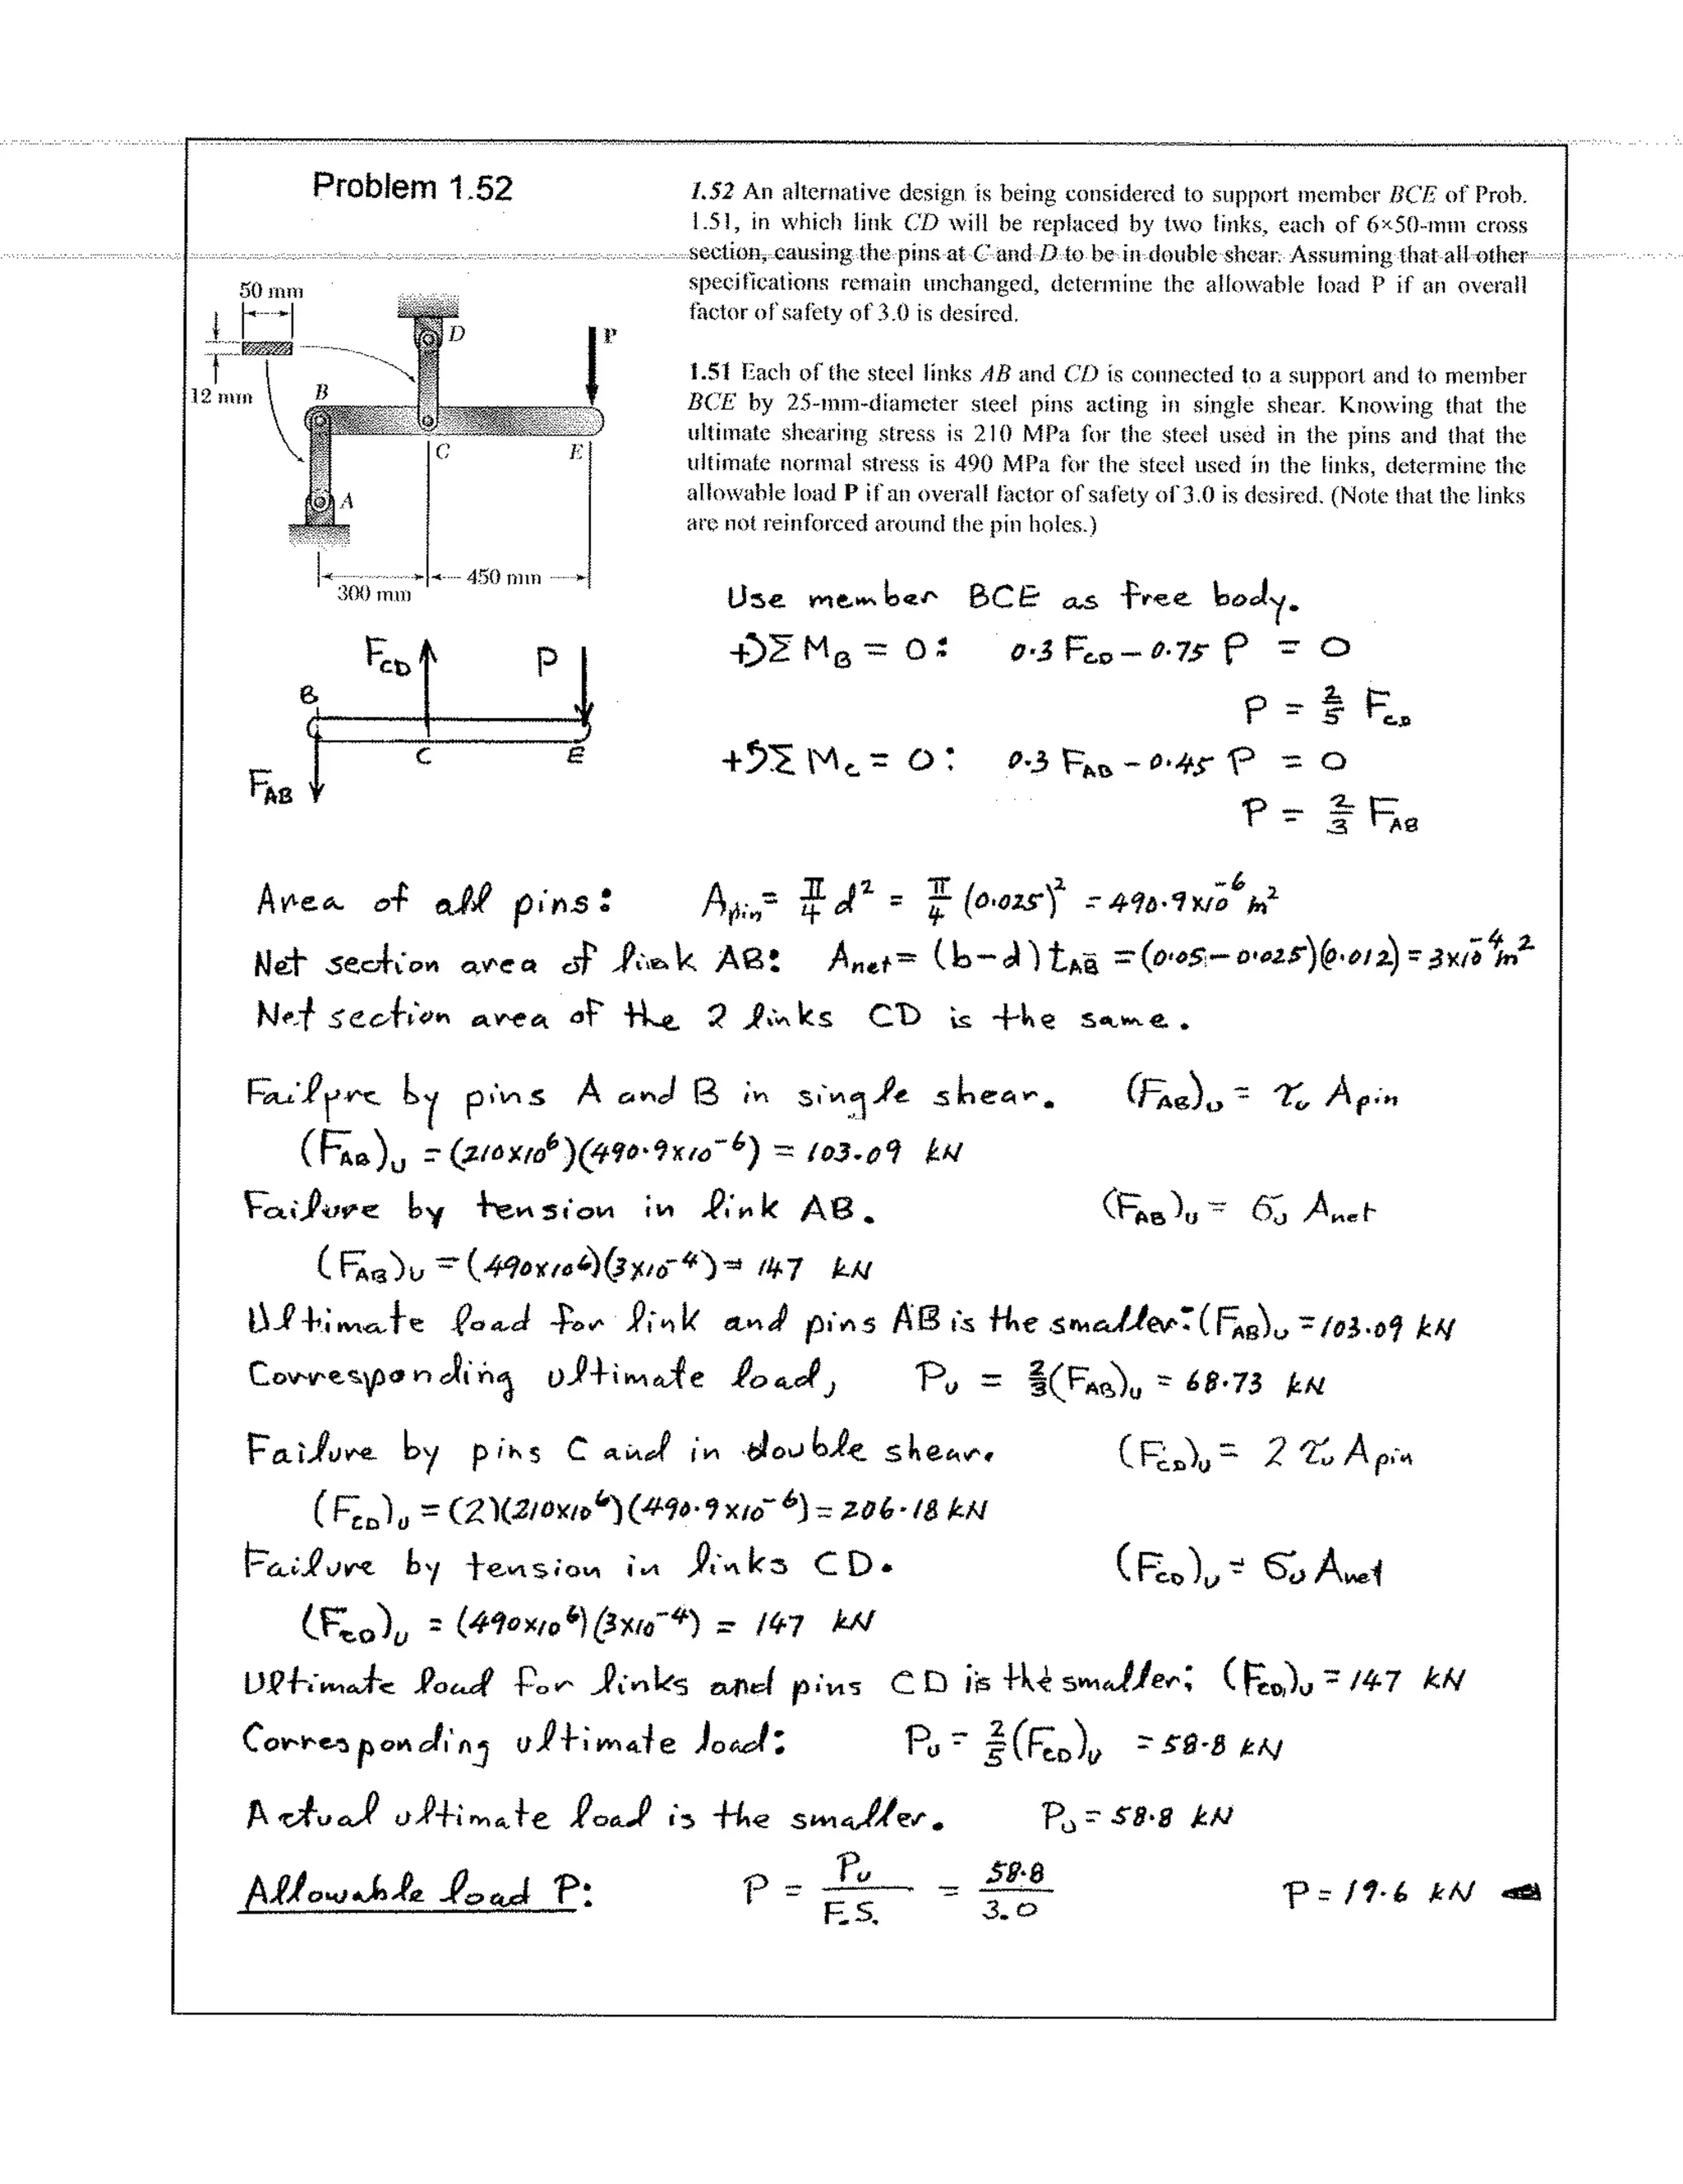 Problem 1.52
1.52 An alternative design is being considered to support member BCE of Prob.
1.51, in which link CD will be replaced by two links, each of 6×50-mm cross
section, causing the pins at C and D to be in double shear. Assuming that all other
specifications remain unchanged, determine the allowable load P if an overall
factor of safety of 3.0 is desired.
1.51 Each of the steel links AB and CD is connected to a support and to member
BCE by 25-mm-diameter steel pins acting in single shear. Knowing that the
ultimate shearing stress is 210 MPa for the steel used in the pins and that the
ultimate normal stress is 490 MPa for the steel used in the links, determine the
allowable load P if an overall factor of safety of 3.0 is desired. (Note that the links
are not reinforced around the pin holes.)
50 mm
D
P
12 mm
B
C
E
A
300 mm
450 mm
F_CD
P
B
C
E
F_AB
Use member BCE as free body.
+↺ΣM_B = 0: 0.3 F_CD − 0.75 P = 0
P = 2/5 F_CD
+↺ΣM_C = 0: 0.3 F_AB − 0.45 P = 0
P = 2/3 F_AB
Area of all pins: A_pin = π/4 d² = π/4 (0.025)² = 490.9×10⁻⁶ m²
Net section area of link AB: A_net = (b−d) t_AB = (0.05 − 0.025)(0.012) = 3×10⁻⁴ m²
Net section area of the 2 links CD is the same.
Failure by pins A and B in single shear. (F_AB)_U = τ_U A_pin
(F_AB)_U = (210×10⁶)(490.9×10⁻⁶) = 103.09 kN
Failure by tension in link AB. (F_AB)_U = σ_U A_net
(F_AB)_U = (490×10⁶)(3×10⁻⁴) = 147 kN
Ultimate load for link and pins AB is the smaller: (F_AB)_U = 103.09 kN
Corresponding ultimate load, P_U = 2/3 (F_AB)_U = 68.73 kN
Failure by pins C and in double shear. (F_CD)_U = 2 τ_U A_pin
(F_CD)_U = (2)(210×10⁶)(490.9×10⁻⁶) = 206.18 kN
Failure by tension in links CD. (F_CD)_U = σ_U A_net
(F_CD)_U = (490×10⁶)(3×10⁻⁴) = 147 kN
Ultimate load for links and pins CD is the smaller; (F_CD)_U = 147 kN
Corresponding ultimate load: P_U = 2/5 (F_CD)_U = 58.8 kN
Actual ultimate load is the smaller. P_U = 58.8 kN
Allowable load P: P = P_U / F.S. = 58.8 / 3.0 P = 19.6 kN